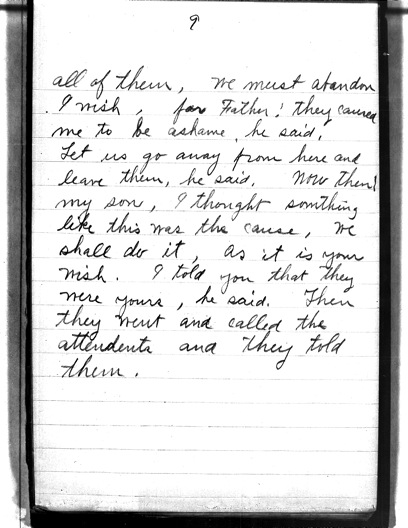 9
all of them, We must abandon
I wish, for Father! they caused
me to be ashame, he said,
Let us go away from here and
leave them, he said. Now then!
my son, I thought somthing
like this was the cause, We
shall do it, as it is your
wish. I told you that they
were yours, he said. Then
they went and called the
attendents and they told
them.